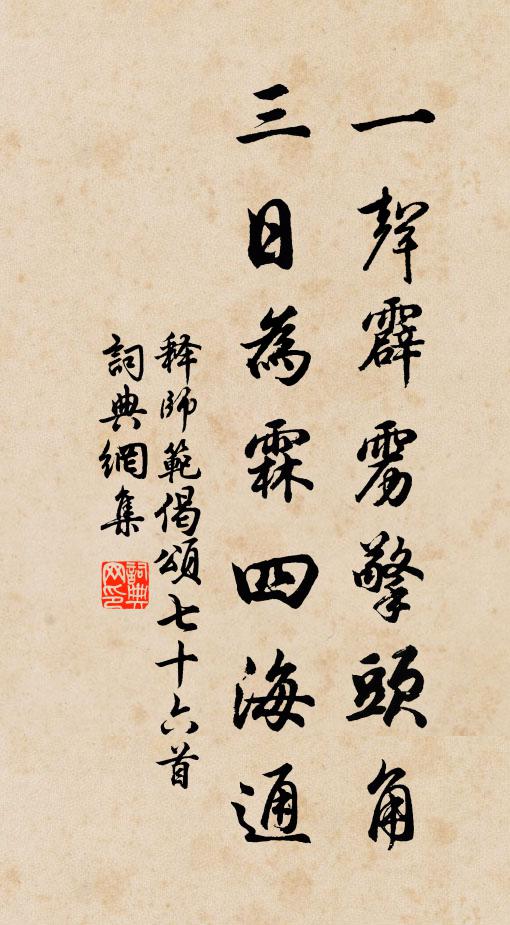 一聲霹雳擎頭角
三日為霖四海通
释師範偈頌七十六首
詞典網集
詞典网印